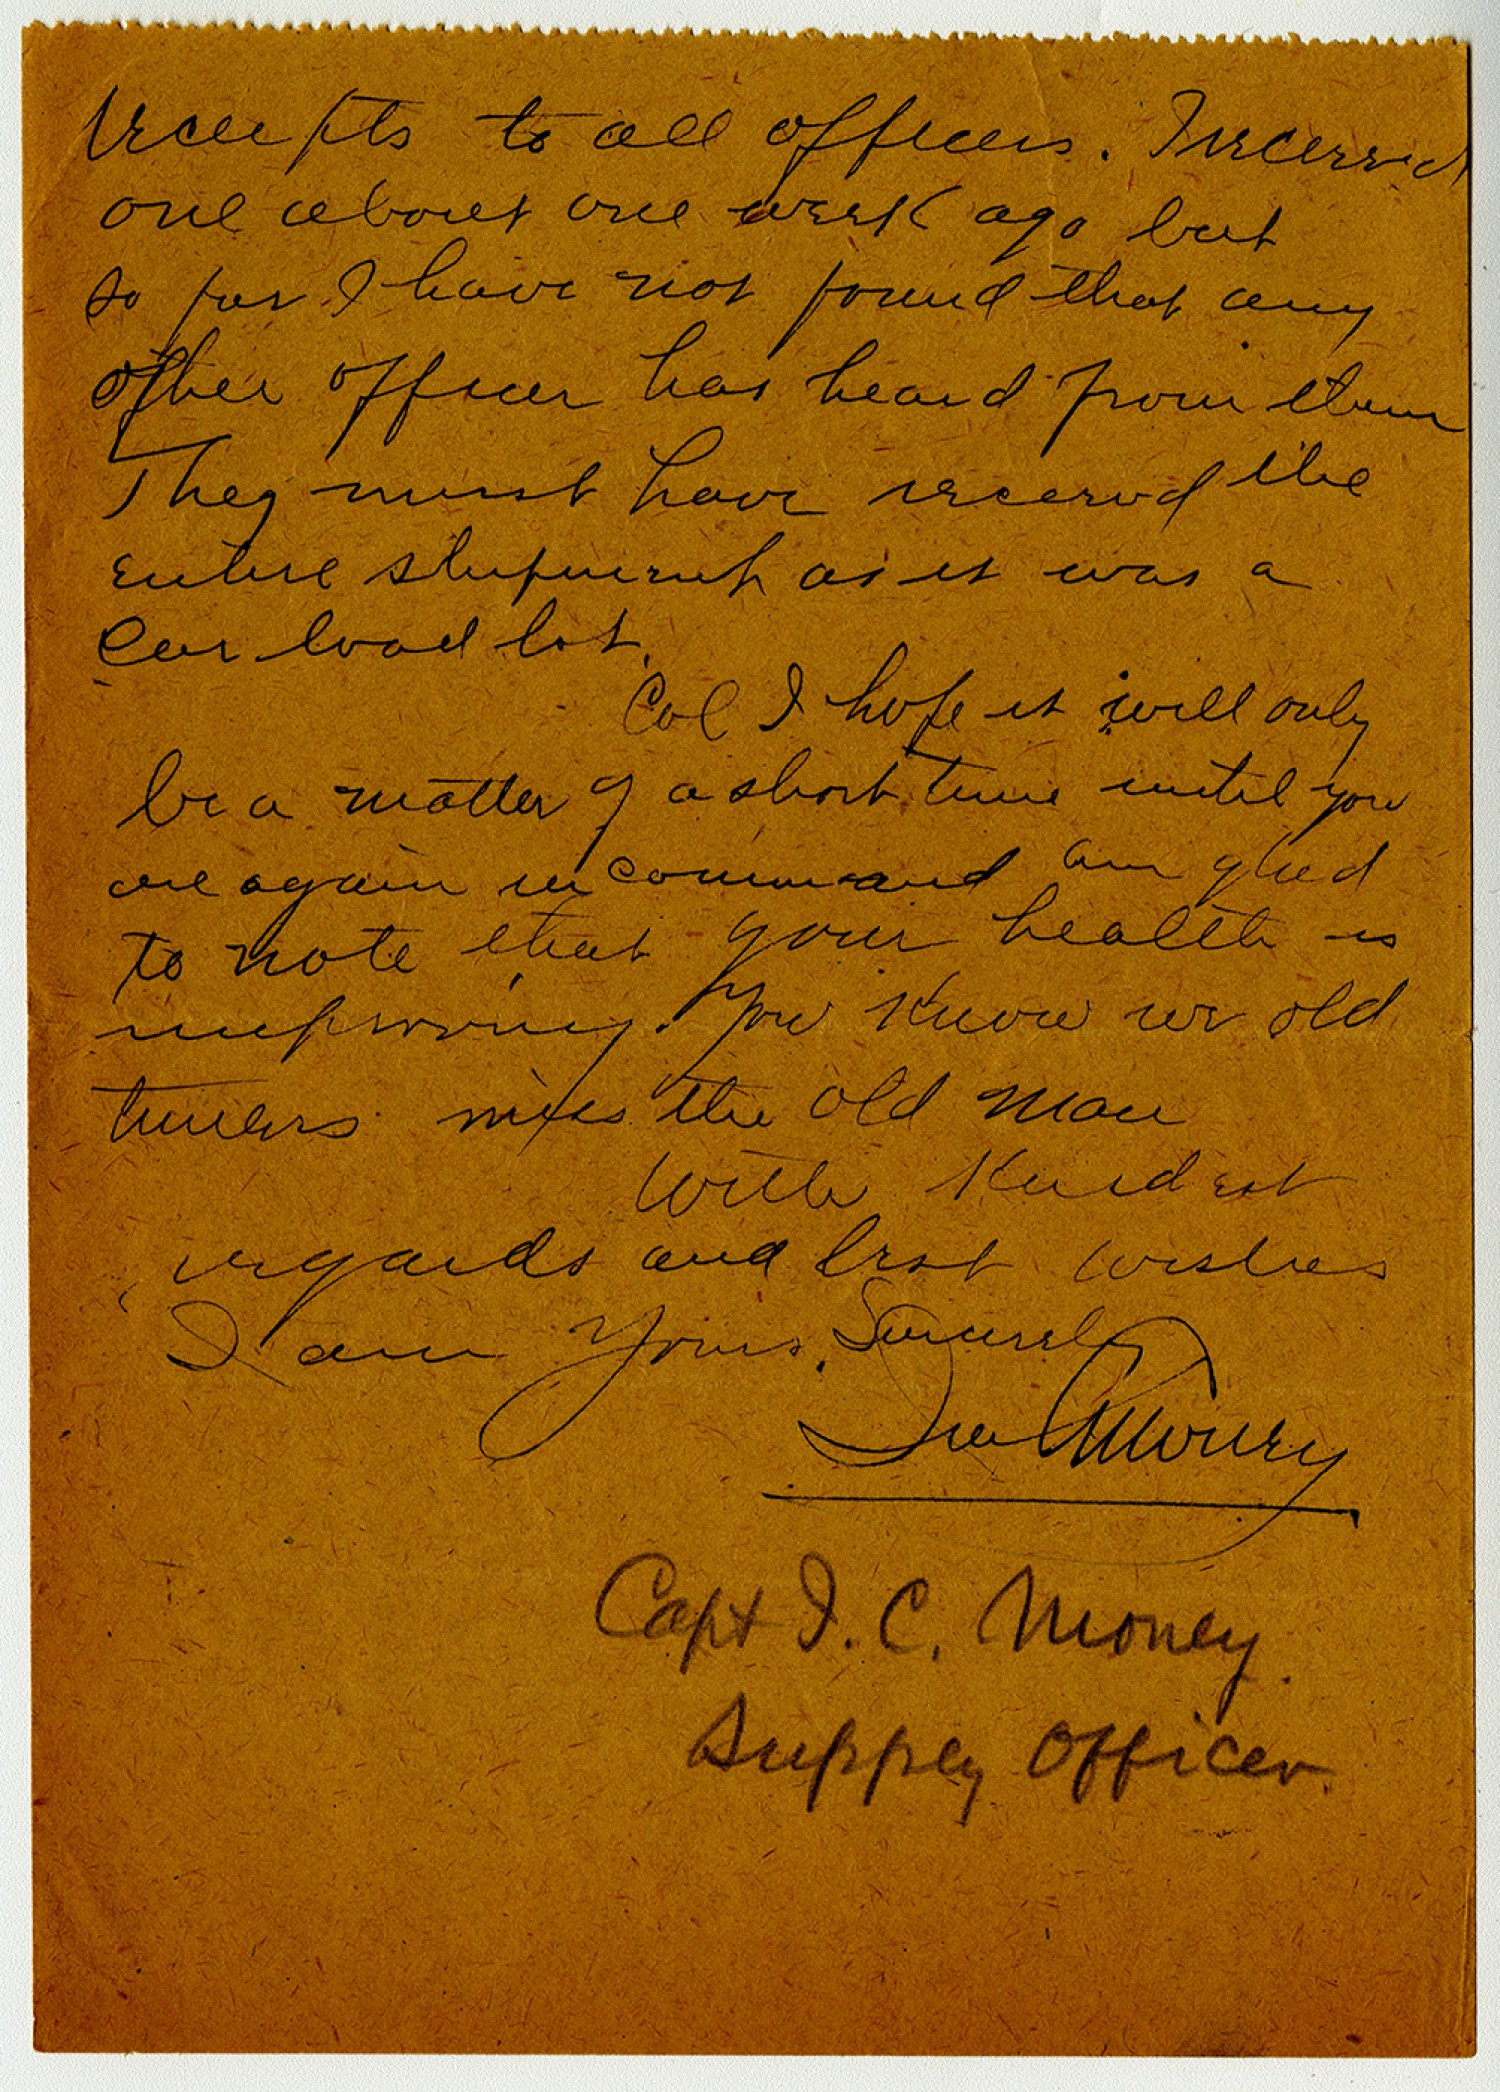 receipts to all officers. I received
one about one week ago but
so far I have not found that any
other officer has heard from them
They must have received the
entire shipment as it was a
Car load lot.
Col I hope it will only
be a matter of a short time until you
are again in command am glad
to note that your health is
improving. You know we old
timers miss the old man
With kindest
regards and best wishes
I am Yours. Sincerely
Ira C Money
Capt I. C. Money.
Supply Officer.